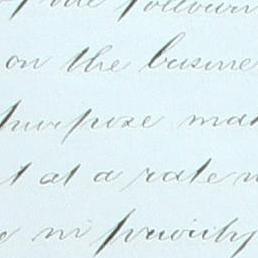 following
on the busine
purpose mak
t at a rate n
in priority